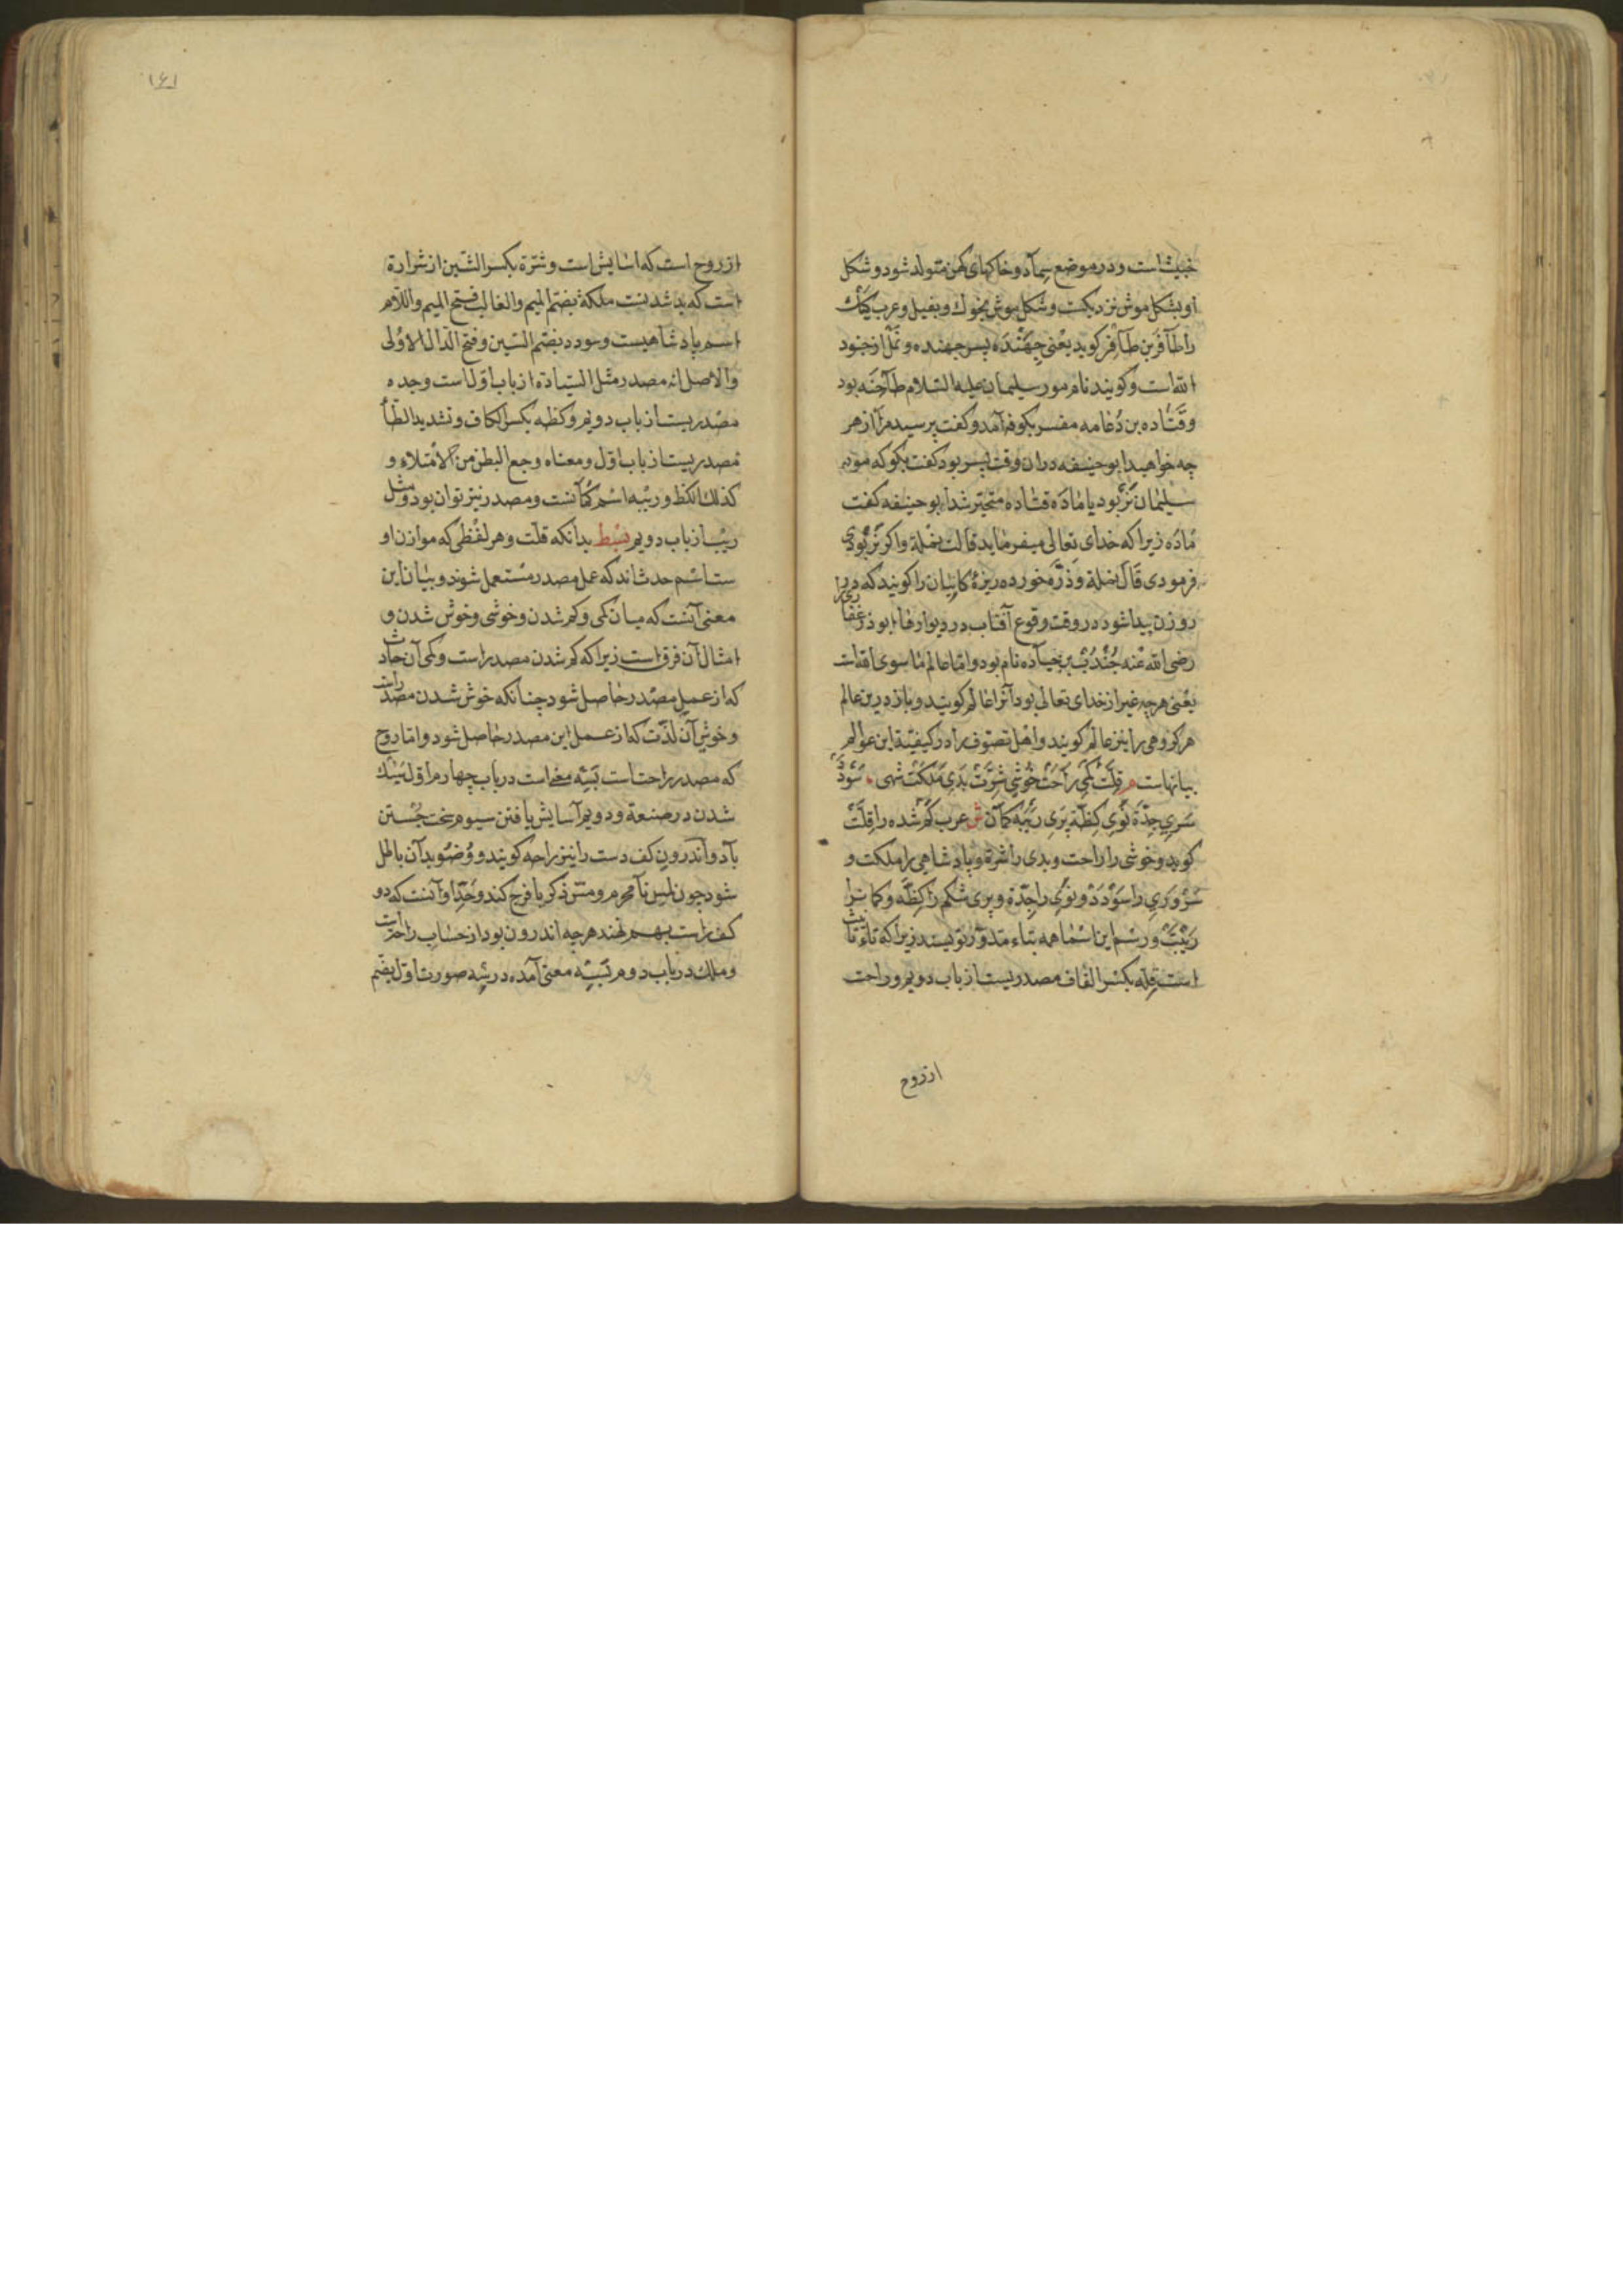 خبیث است و در موضع سماد و خاکهای کهن متولد شود و شکل
او بشکل موش نزدیکست و شکل موش بخوک و بفیل و عرب کیک
را طافر بن طافر کوید یعنی جهنده پسر جهنده و نمل از جنود
الله است و کویند نام مور سلیمان علیه السلام طاخنه بود
و قتاده بن دعامه مفسر بکوفه آمد و کفت پرسید مرا از هر
چه خواهید ابو حنیفه دران وقت پسر بود کفت بکو که مور
سلیمان نر بود یا ماده قتاده متحیر شد ابو حنیفه کفت
ماده زیرا که خدای تعالی میفرماید قالت نملة واکر نر بودی
فرمودی قال نملة و ذره خورده ریزهٔ کاینات را کویند که در
روزن پیدا شود در وقت وقوع آفتاب در دیوارها ابوذر غفاری را
رضی الله عنه جندب بن جناده نام بود و اما عالم ما سوی الله است
یعنی هرچه غیر از خدای تعالی بود آنرا عالم کویند و باز درین عالم
هر کروهی را نیز عالم کویند و اهل تصوف را در کیفیة این عوالم
بیانهاست م قلت کمی راحت خوشی شرت بدی ملکت شهی سودد
سری جدة نوی کظة پری ریبه کمان ش عرب کم شده را قلت
کوید و خوشی را راحت و بدی را شرة و پادشاهی را ملکت و
سروری را سودد و نوی را جدة و پری شکم را کظه و کمانرا
ریبت و رسم این اسما همه بتاء مدور نویسند زیرا که تاء تانیث
است قله بکسر القاف مصدریست از باب دویم و راحت
ازروح
۱۴۱
از روح است که اسایش است و شرة بکسر الشین از شرارة
است که بد شدنست ملکة بضم المیم والغالب فتح المیم واللام
اسم پادشاهیست و سودد بضم السین و فتح الدال الاولی
والاصل انه مصدر مثل السیادة از باب اول است و جده
مصدریست از باب دویم و کظه بکسر الکاف و تشدید الظا
مصدریست از باب اول و معناه وجع البطن من الامتلاء و
کذلک الکظ و ریبه اسم کمانست و مصدر نیز توان بود و مثل
ریب از باب دویم بسط بدانکه قلت و هر لفظی که موازن او
ست اسم حدث اند که عمل مصدر مستعمل شوند و بیان این
معنی آنست که میان کمی و کم شدن و خوشی و خوش شدن و
امثال آن فرق است زیرا که کم شدن مصدر است و کمی آن حادث
که از عمل مصدر حاصل شود چنانکه خوش شدن مصدر است
و خوشی آن لذت که از عمل این مصدر حاصل شود و اما روح
که مصدر راحت است بسه معنی است در باب چهارم اول نیک
شدن در صنعة و دویم آسایش یافتن سیوم سخت جستن
باد و اندرون کف دست را نیز راحه کویند و وضو بدان باطل
شود چون لمس نامحرم و مس ذکر یا فرج کند و حد او آنست که دو
کف راست بهم نهند هرچه اندرون بود از حساب راحتست
و ملک در باب دوم بسه معنی آمده در سه صورت اول بضم